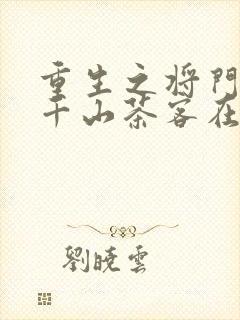 重生之将門
千山茶客在
劉曉雲